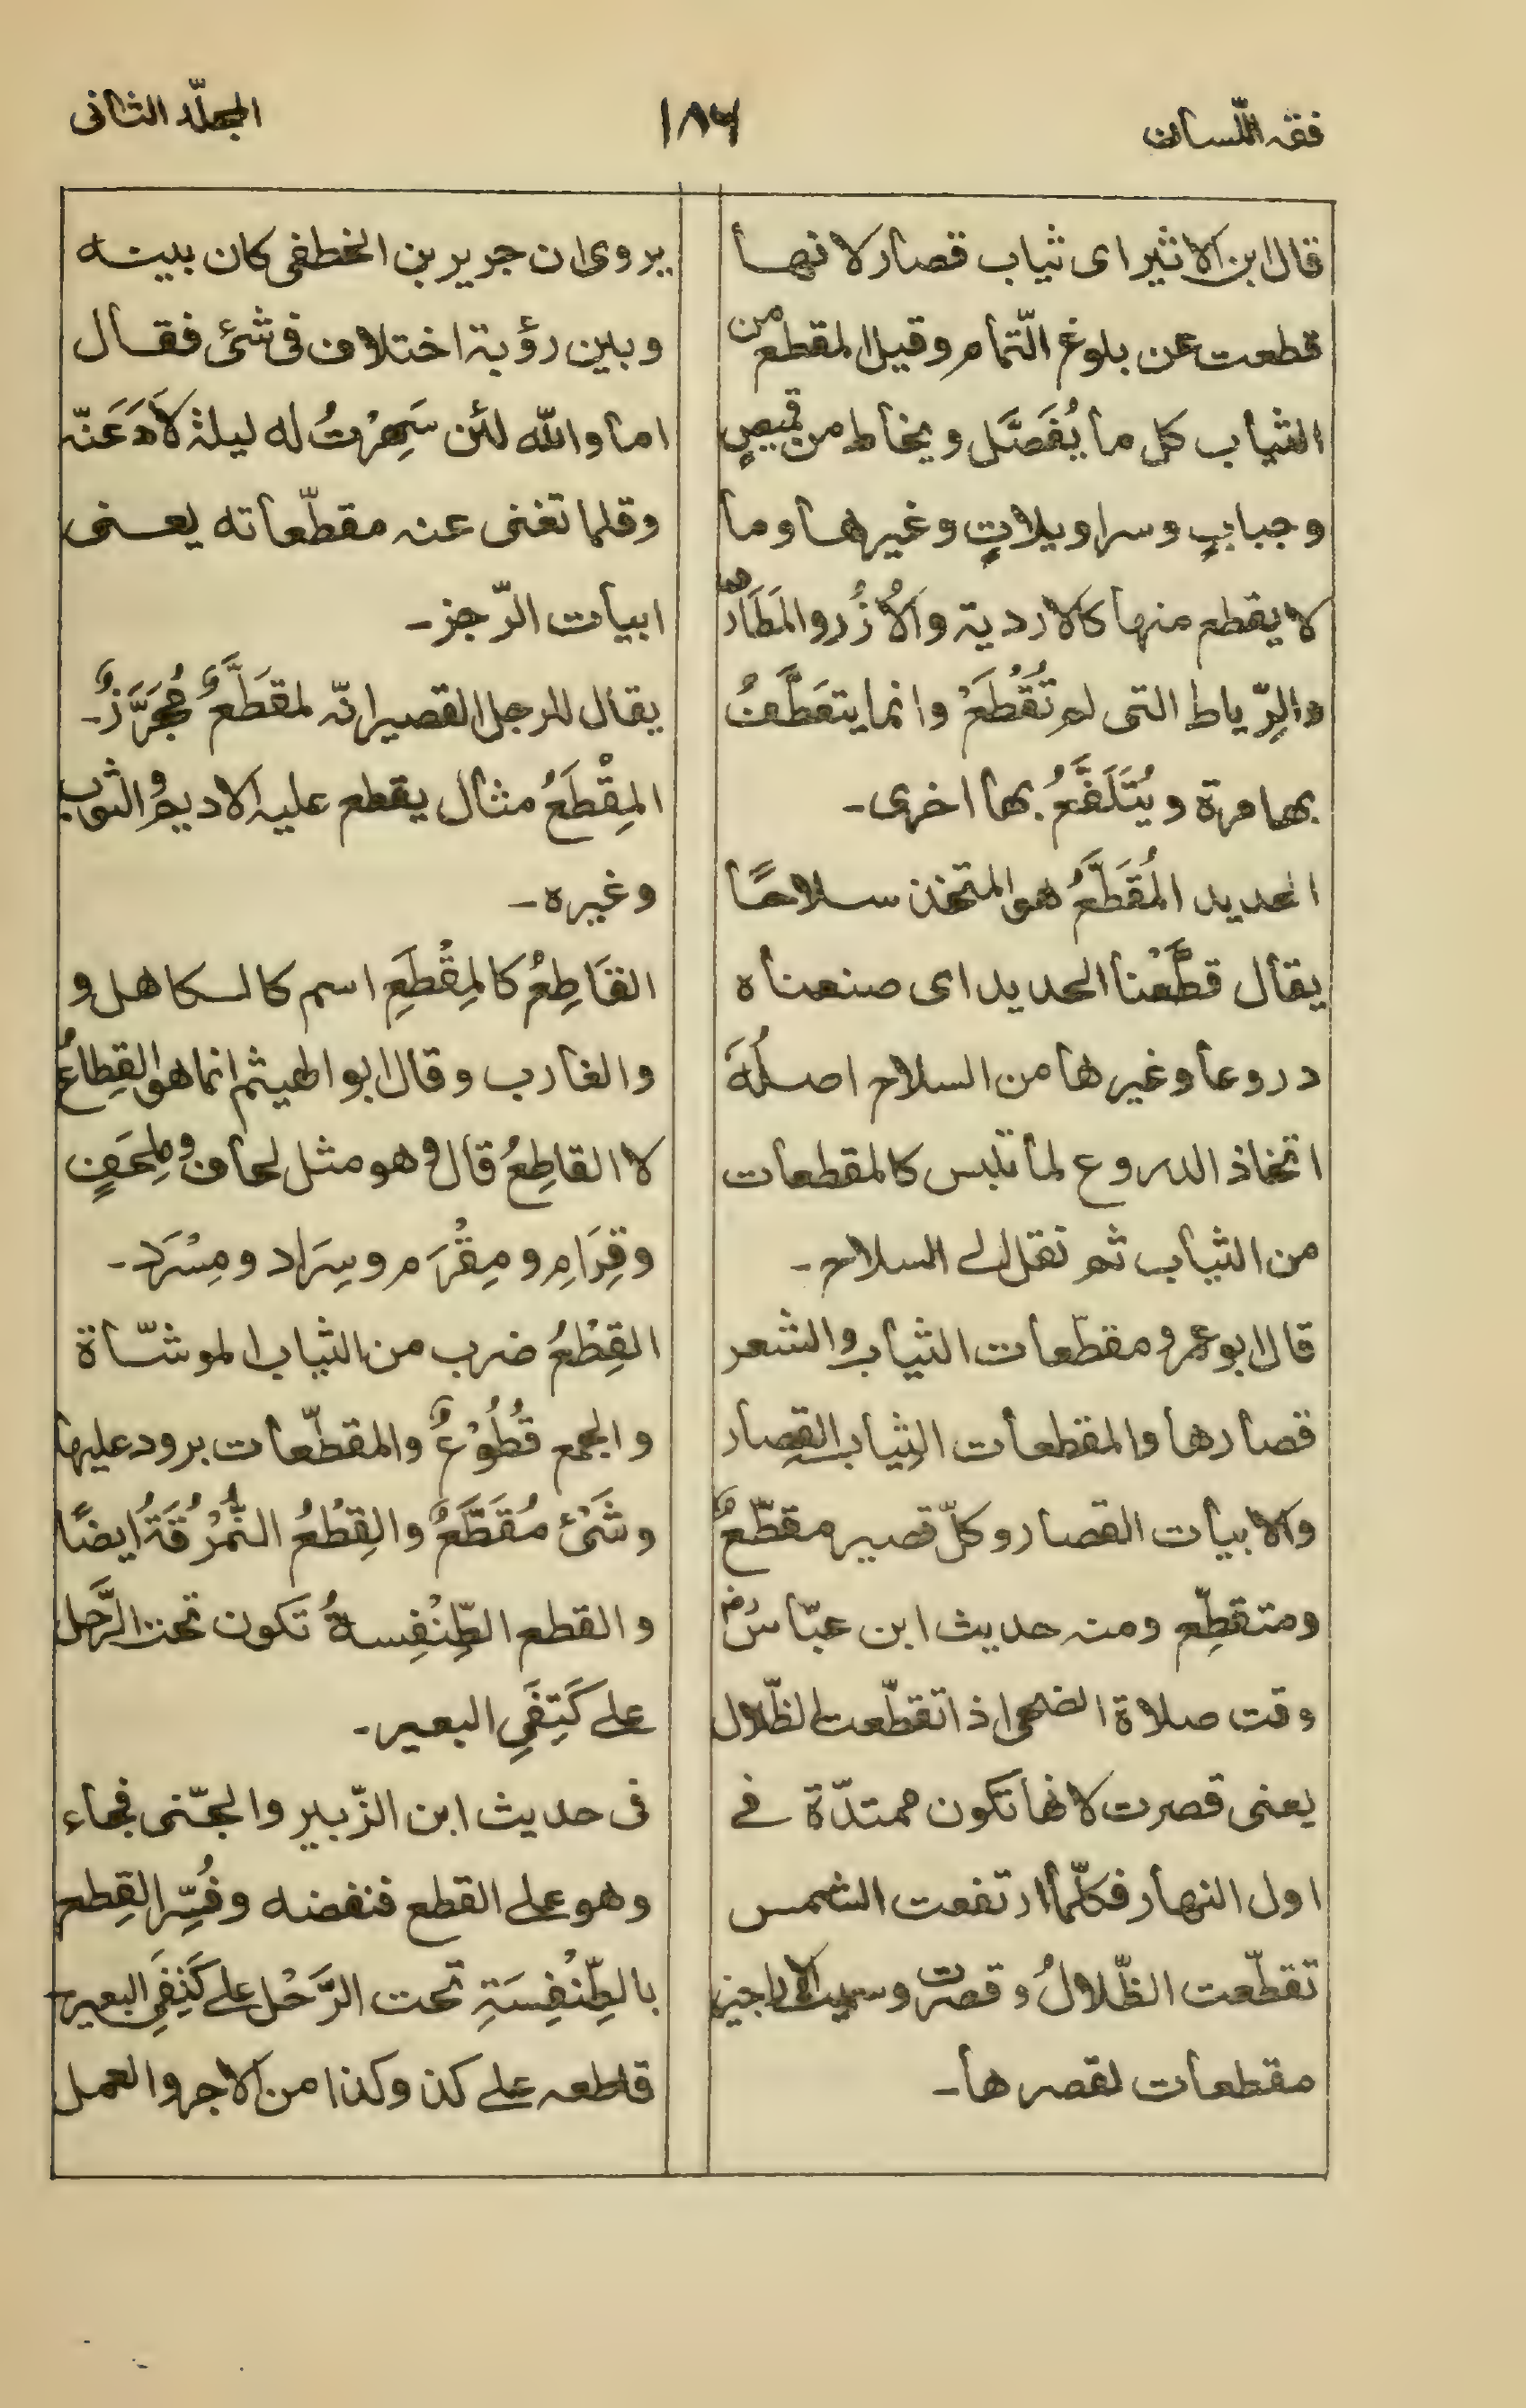 فقه اللّسان
١٨٦
المجلّد الثانى
قال ابن الاثير اى ثياب قصار لانها
قطعت عن بلوغ التّمام وقيل المقطع من
الثياب كل ما يُفَصَّل ويخاط من قميصٍ
وجبابٍ وسراويلاتٍ وغيرها وما
لا يقطع منها كالاردية والاُزُر والمَطَارِ
والرِّياط التى لم تُقْطَعْ وانما يتعَطَّفُ
بها مرة ويُتَلَفَّعُ بها اخرى۔
الحديد المُقَطَّعُ هو المتخذ سلاحًا
يقال قطَّعْنا الحديد اى صنعناه
دروعا وغيرها من السلاح اصلُهُ
اتخاذ الدروع لما تلبس كالمقطعات
من الثياب ثم نقل الے السلاح۔
قال ابو عمرو مقطّعات الثياب والشعر
قصارها والمقطعات الثياب القصار
والابيات القصار وكلّ قصير مقطّعٌ
ومتقطِّع ومنه حديث ابن عبّاسؓ
وقت صلاة الضحى اذا تقطّعت الظّلال
يعنى قصرت لانها تكون ممتدّة فے
اول النهار فكلّما ارتفعت الشمس
تقطّعت الظّلالُ وقصرت وسميت الاراجيز
مقطعات لقصرها۔
يروى ان جرير بن الخطفى كان بينه
وبين رؤبة اختلاف فى شئ فقال
اما والله لئن سَهِرْتُ له ليلة لاَدَعَنّه
وقلما تغنى عنه مقطّعاته يعنى
ابيات الرّجز۔
يقال للرجل القصير انّه لمقَطَّعٌ مُجَرَّزٌ۔
المِقْطَعُ مثال يقطع عليه الاديم والثوب
وغيره۔
القَاطِعُ كالمِقْطَعِ اسم كالكاهل و
والغارب وقال ابو الهيثم انما هو القِطاعُ
لا القاطِعُ قال وهو مثل لحاف ومِلِحَفٍ
وقِرَامِ ومِقْرَم وسِرَاد ومِسْرَد۔
القِطْعُ ضرب من الثياب الموشّاة
والجمع قُطُوْعٌ والمقطّعات برود عليها
وشَىْ مُقَطَّعٌ والقِطْعُ النُّمْرُقَةُ ايضًا
والقطع الطِّنْفِسةُ تكون تحت الرَّحل
علے كَتِفَىِ البعير۔
فى حديث ابن الزّبير والجّنى فجاء
وهو على القطع فنفضه وفُسِّر القِطع
بالطِّنْفِسَةِ تحت الرَّحْل علے كَتِفَىِ البعير۔
قاطعه علے كذ وكذا من الاجر والعمل